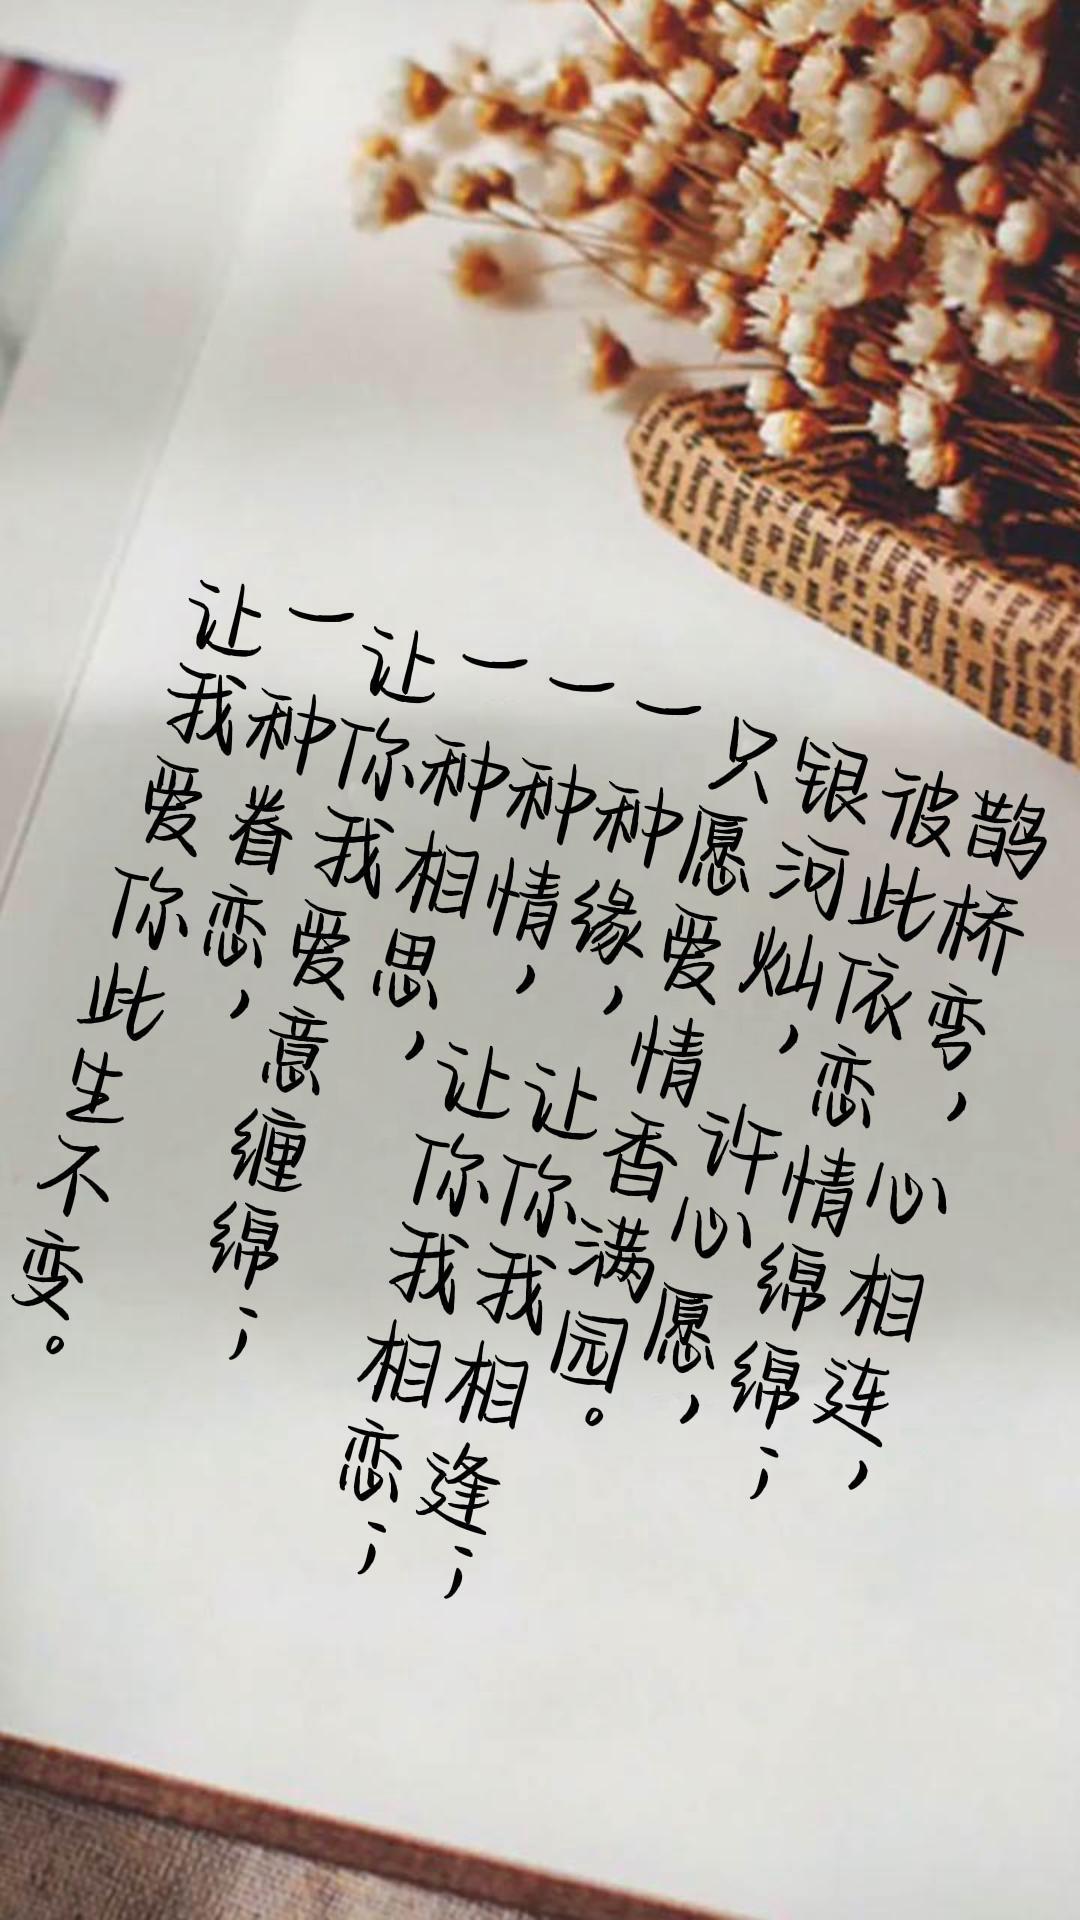 鹊桥弯，心相连，
彼此依恋情绵绵；
银河灿，许心愿，
只愿爱情香满园。
一种缘，让你我相逢；
一种情，让你我相恋；
一种相思，
让你我爱意缠绵；
一种眷恋，
让我爱你此生不变。